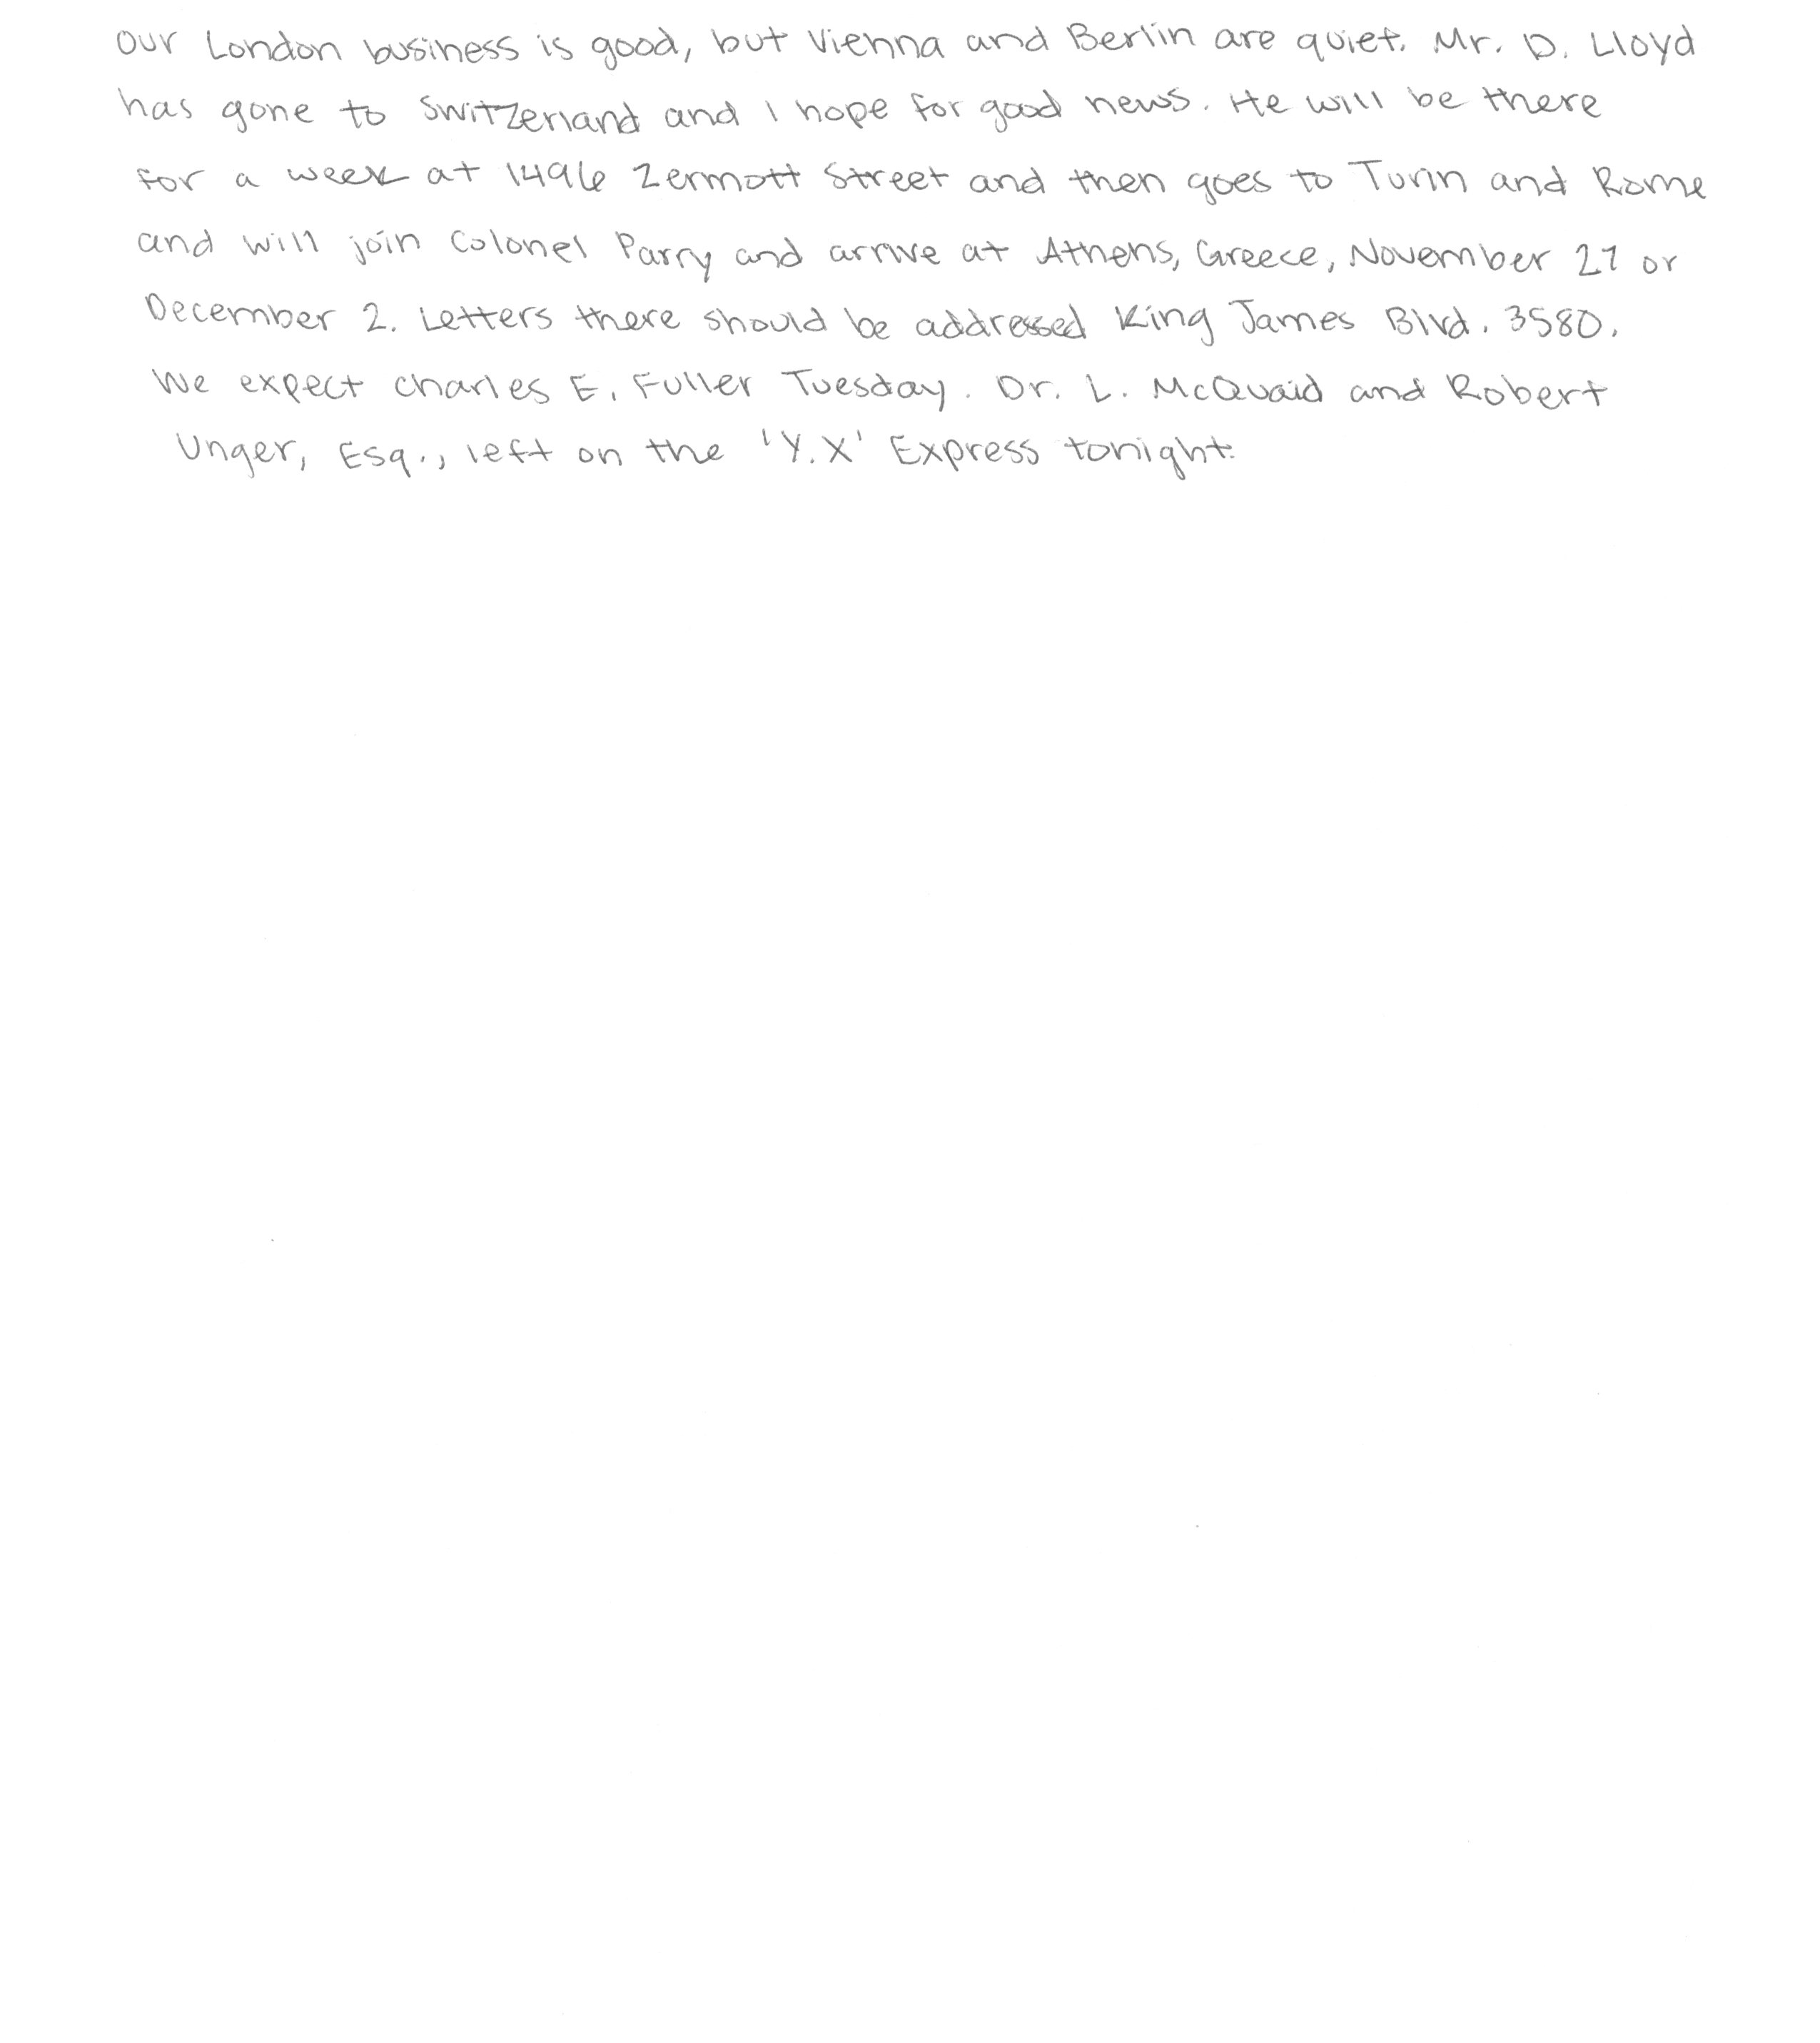 Our London business is good, but Vienna and Berlin are quiet. Mr. D. Lloyd
has gone to Switzerland and I hope for good news. He will be there
for a week at 1496 Zermott Street and then goes to Turin and Rome
and will join Colonel Parry and arrive at Athens, Greece, November 27 or
December 2. Letters there should be addressed King James Blvd. 3580.
We expect Charles E. Fuller Tuesday. Dr. L. McQuaid and Robert
Unger, Esq., left on the 'Y.X' Express tonight.